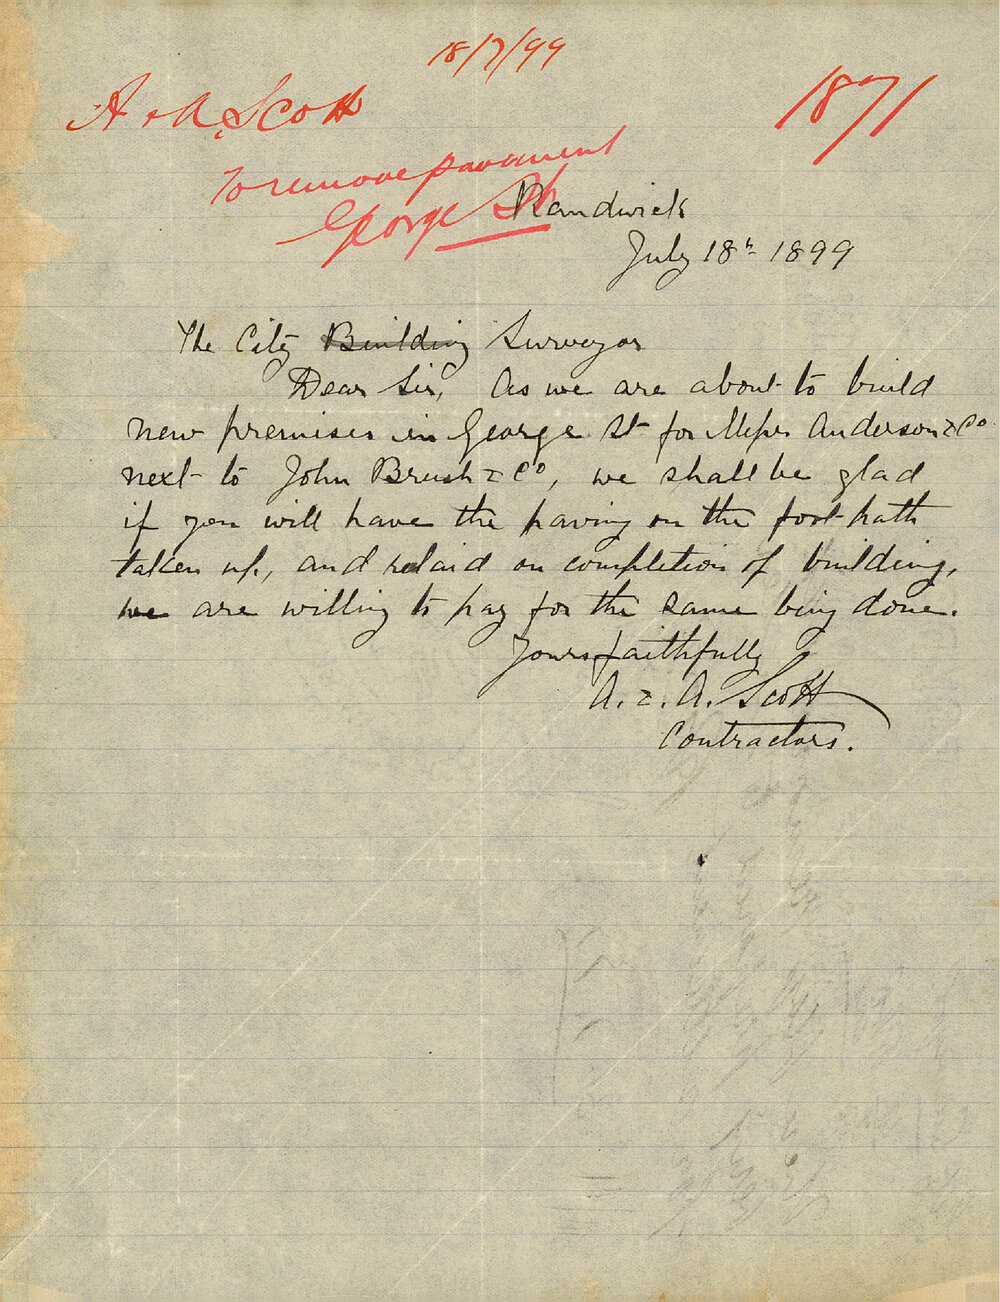 18/7/99
A & A. Scott
1871
To remove pavement
George St
Randwick
July 18th 1899
The City Building Surveyor
Dear Sir, As we are about to build
new premises in George St for Messrs Anderson & Co
next to John Brush & Co, we shall be glad
if you will have the paving on the foot path
taken up, and relaid on completion of building,
we are willing to pay for the same being done.
Yours faithfully
A. & A. Scott
Contractors.